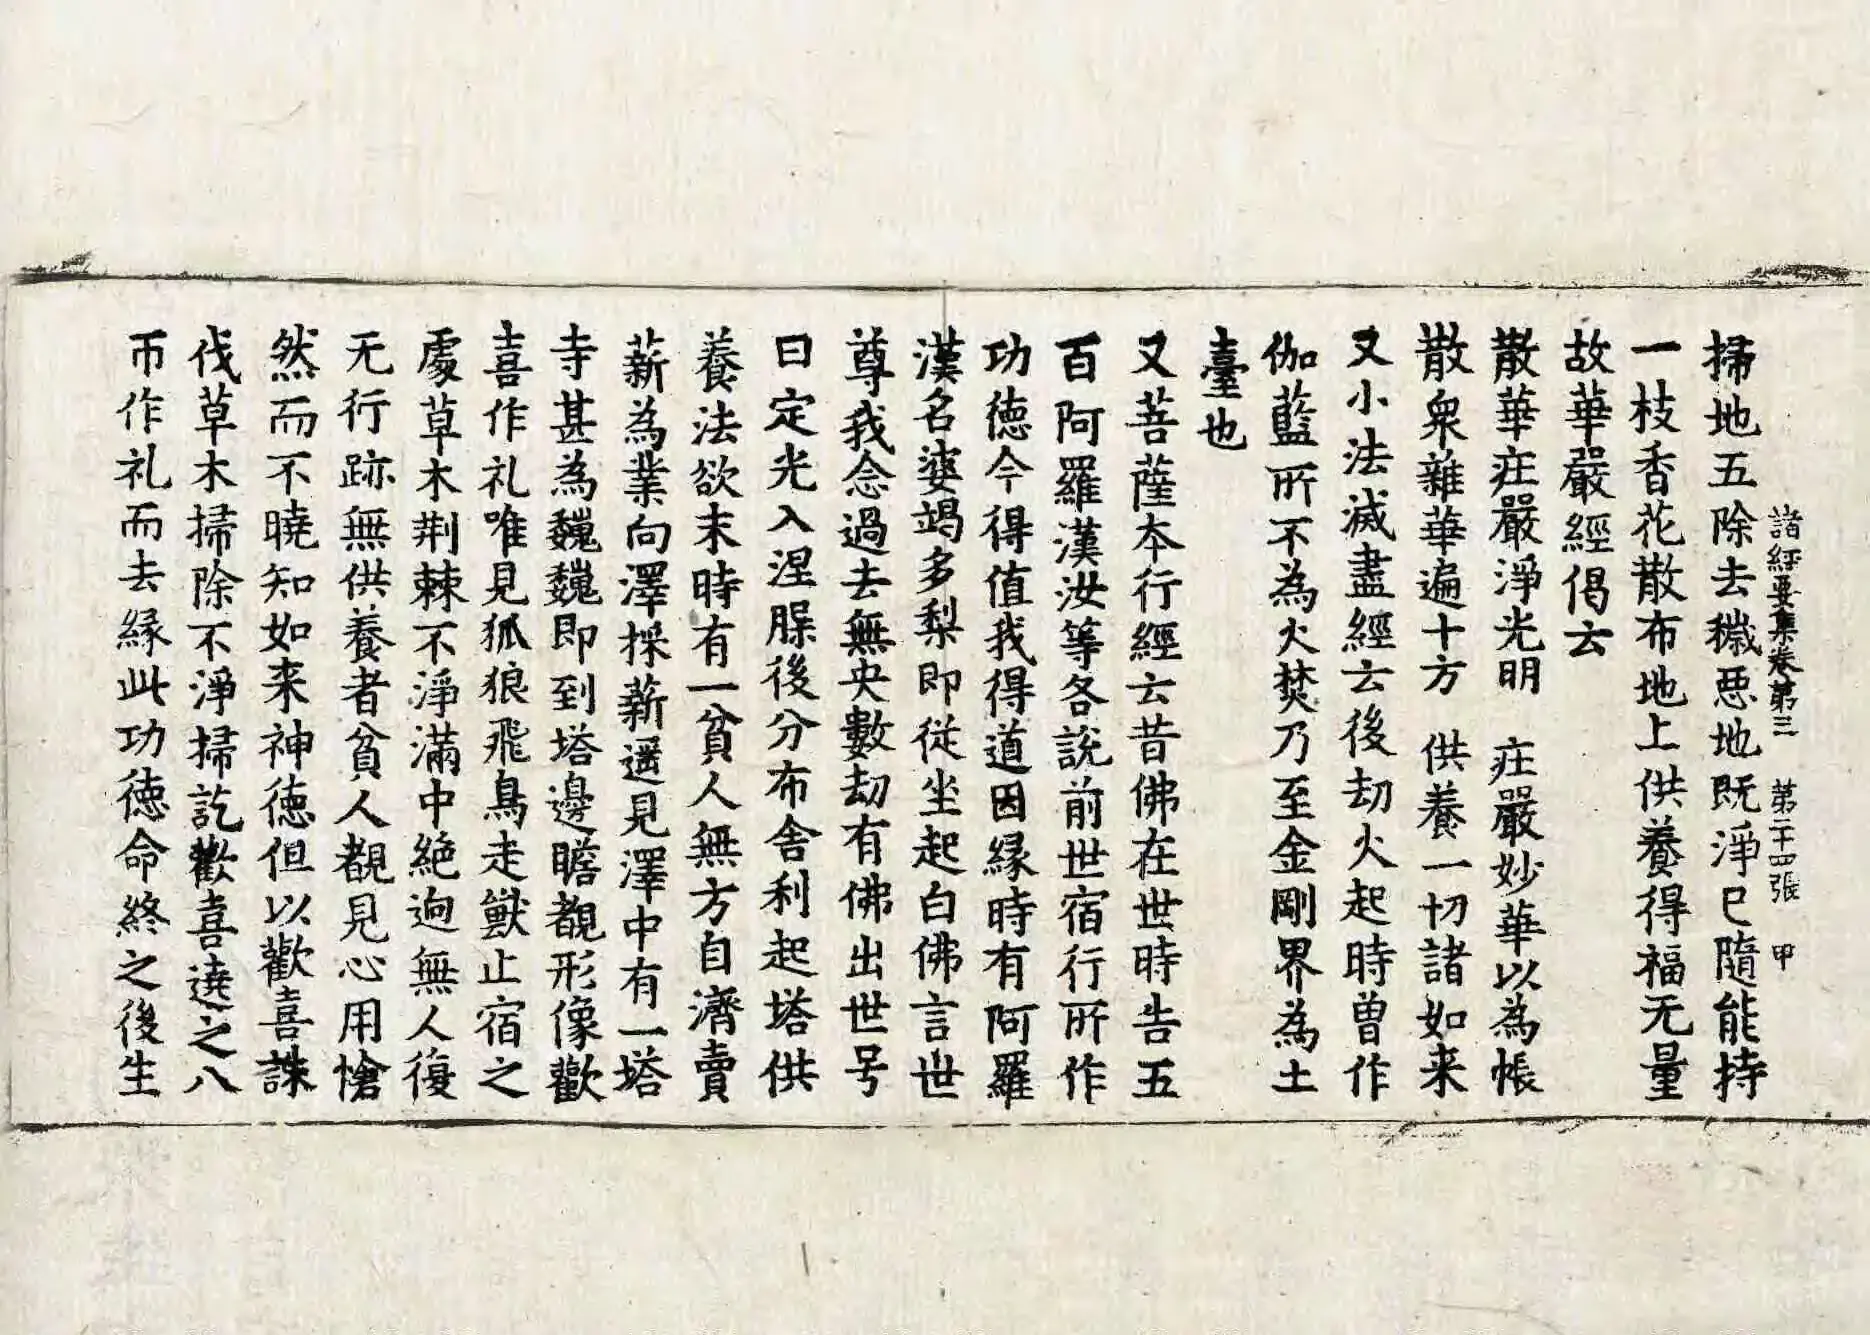 諸經要集卷第三 第二十四張 甲
掃地五除去穢惡地既淨已隨能持
一枝香花散布地上供養得福无量
故華嚴經偈云
散華莊嚴淨光明 莊嚴妙華以為帳
散衆雜華遍十方 供養一切諸如来
又小法滅盡經云後劫火起時曽作
伽藍所不為火焚乃至金剛界為土
臺也
又菩薩本行經云昔佛在世時告五
百阿羅漢汝等各說前世宿行所作
功德今得值我得道因緣時有阿羅
漢名婆竭多梨即從坐起白佛言世
尊我念過去無央數劫有佛出世号
曰定光入涅槃後分布舍利起塔供
養法欲末時有一貧人無方自濟賣
薪為業向澤採薪遥見澤中有一塔
寺甚為巍巍即到塔邊瞻覩形像歡
喜作礼唯見狐狼飛鳥走獸止宿之
處草木荆棘不淨滿中絶逈無人復
无行跡無供養者貧人覩見心用愴
然而不曉知如来神德但以歡喜誅
伐草木掃除不淨掃訖歡喜遶之八
帀作礼而去緣此功德命終之後生